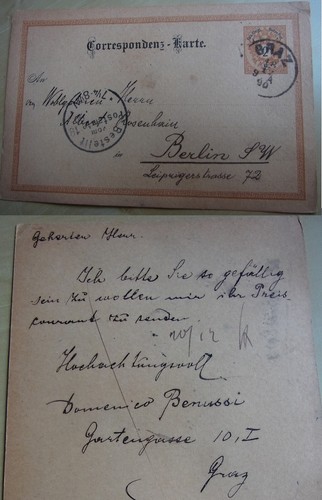 Correspondenz-Karte.
GRAZ
90
An
Wohlgeboren Herrn
Albert Rosenhain
Bestellt
vom
Postamte
in
Berlin S W
Leipzigerstrasse 72
Geherten Herr.
Ich bitte Sie so gefällig
sein zu wollen mir ihr Preis
courant zu senden.
20/12
Hochachtungsvoll
Domenico Benussi
Gartengasse 10, I
Graz